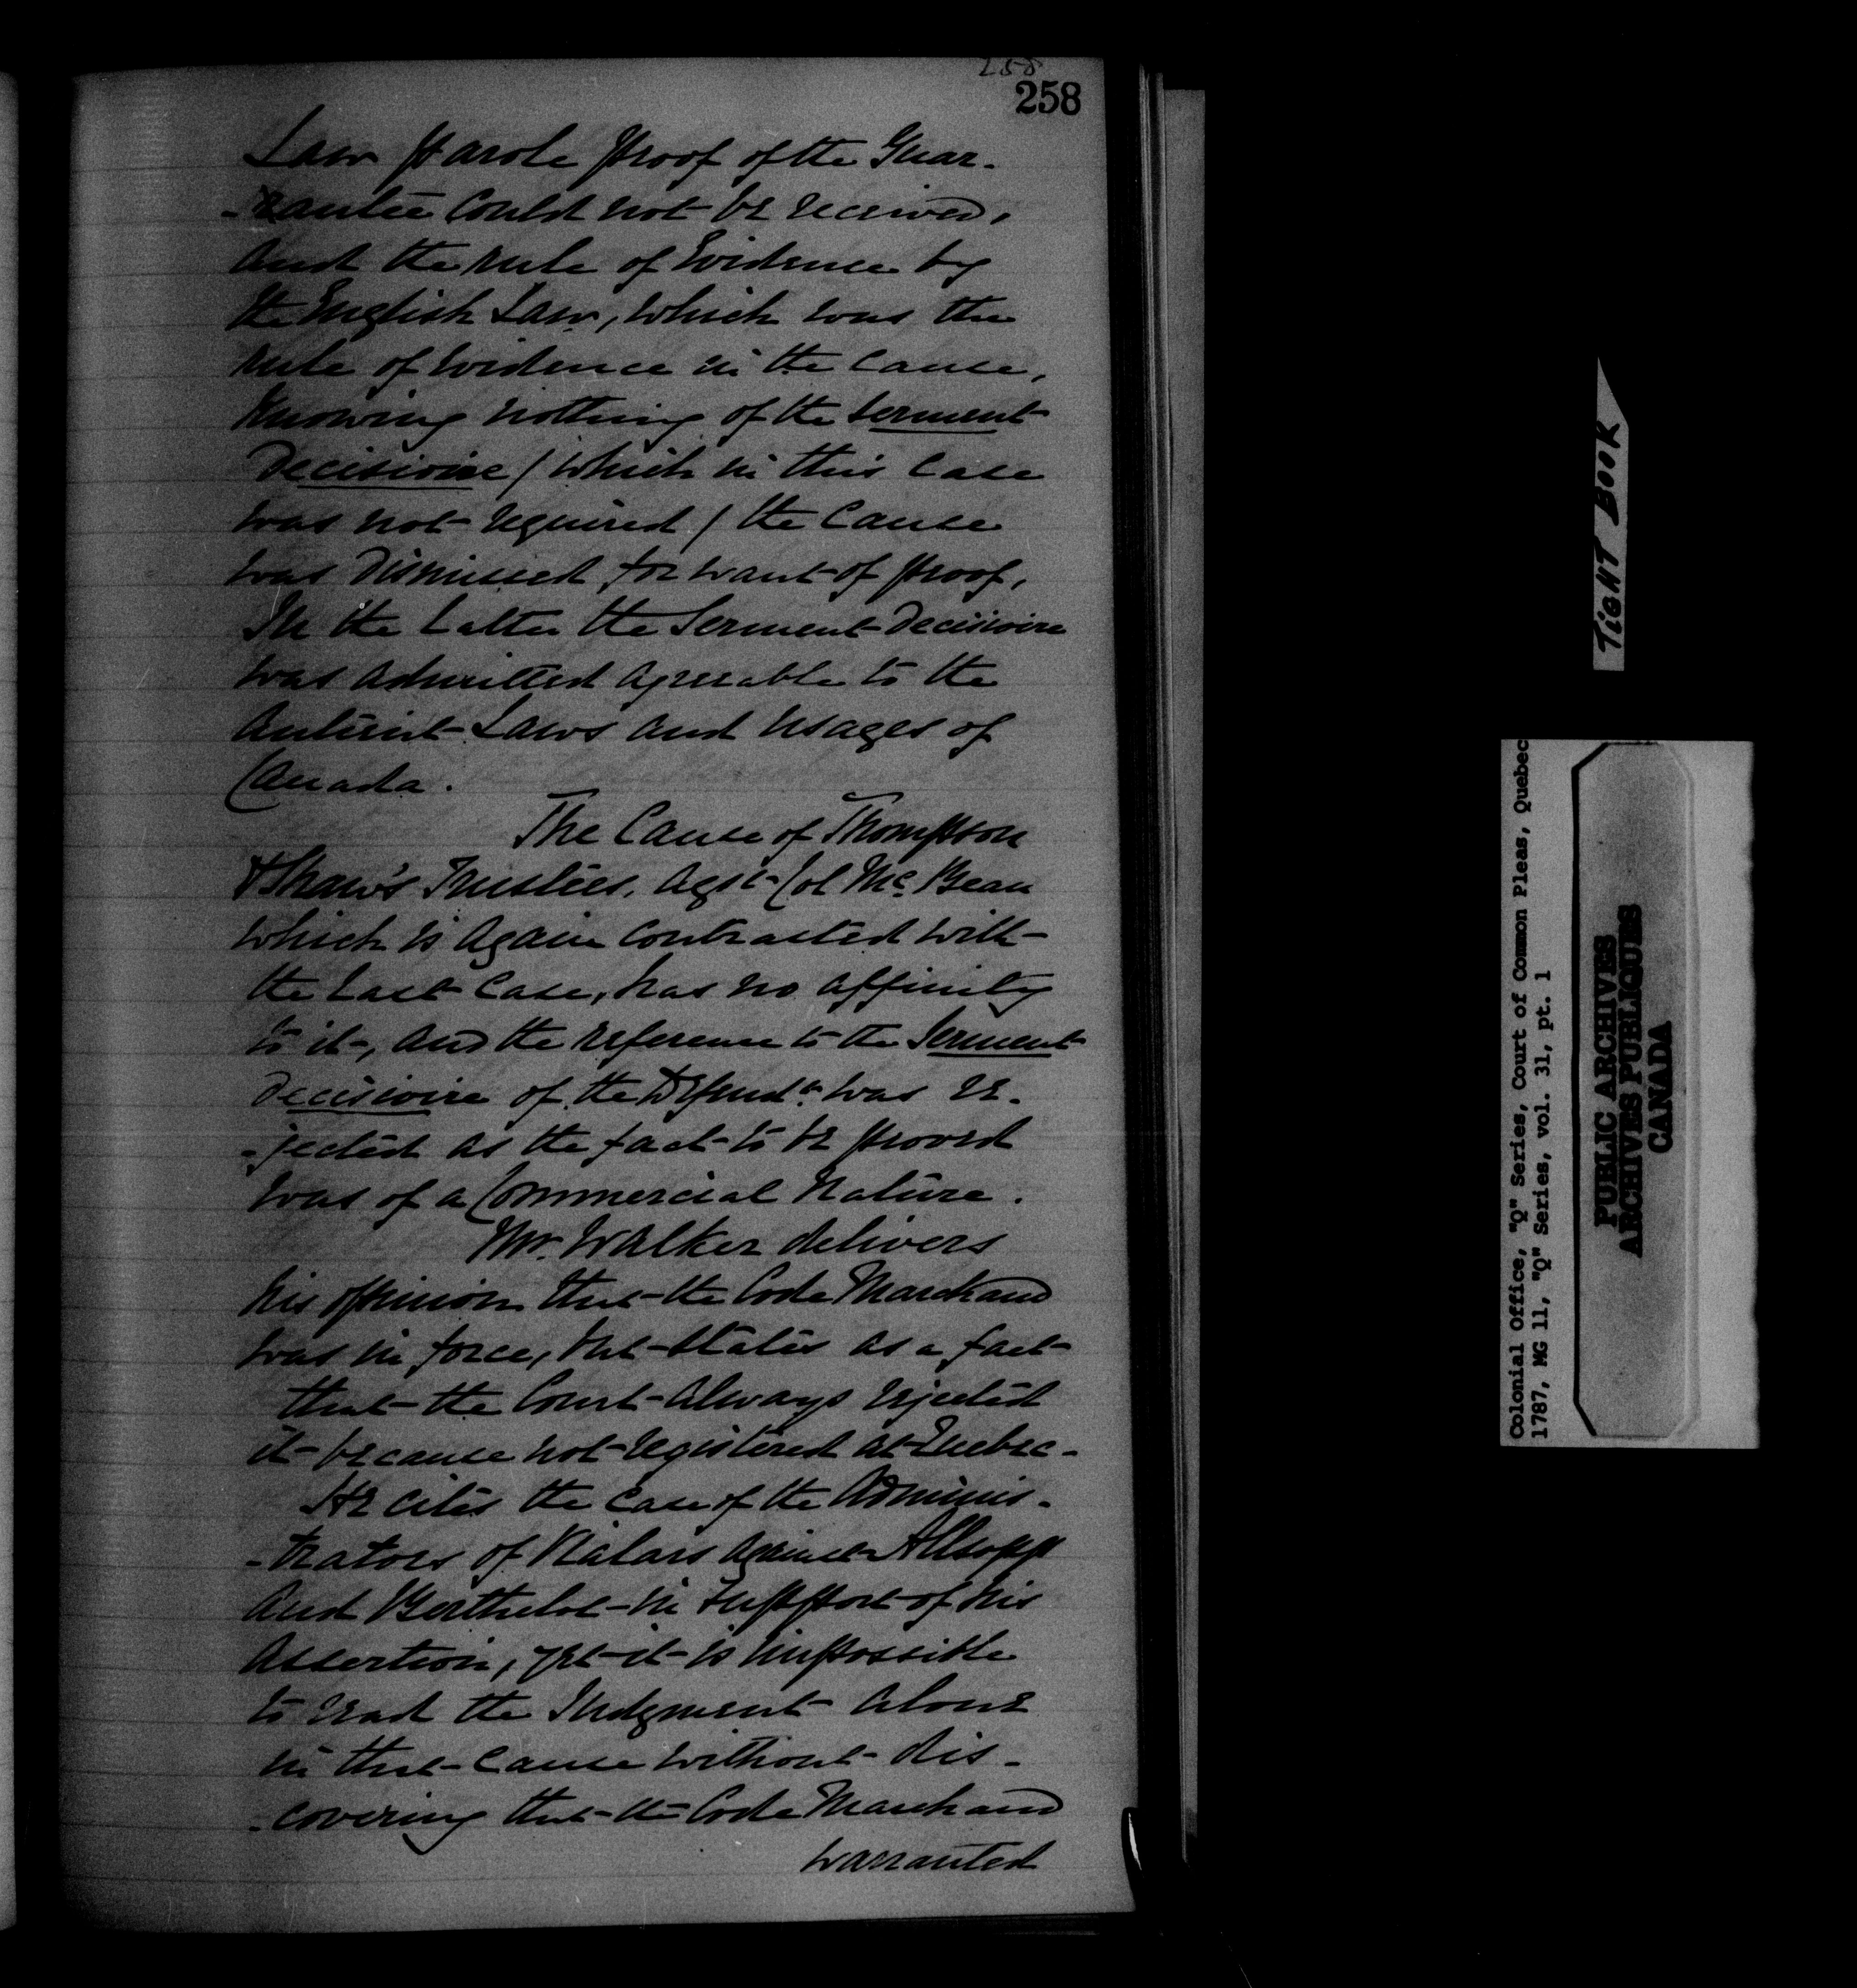 258
258
Law Parole Proof of the Guar-
-rantee could not be received,
and the rule of Evidence by
the English Law, which was the
rule of Evidence in the Cause,
knowing nothing of the serment
Decisoire / which in this Case
was not required / the Cause
was dismissed for want of proof,
In the latter the Serment Decisoire
was admitted agreable to the
antient Laws and Usages of
Canada.
The Cause of Thompson
& Shaw's Trustees. agst Col Mc. Bean
which is again contrasted with
the last Case, has no affinity
to it, and the reference to the Serment
Decisoire of the Defendt. was re-
-jected as the fact to be proved
was of a Commercial Nature.
Mr. Walker delivers
his opinion that the Code Marchand
was in force, but states as a fact
that the Court always rejected
it because not registered at Quebec-
He cites the case of the Adminis-
-trators of Vialars against Allsopp
and Berthelot in support of his
assertion, yet it is impossible
to read the Judgment alone
in that Cause without dis-
-covering that the Code Marchand
warranted
TIGHT BOOK
Colonial Office, "Q" Series, Court of Common Pleas, Quebec
1787, MG 11, "Q" Series, vol. 31, pt. 1
PUBLIC ARCHIVES
ARCHIVES PUBLIQUES
CANADA